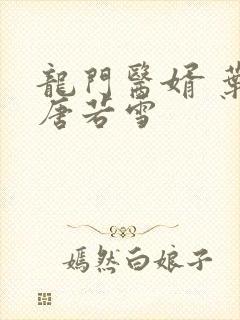 龍門醫婿
唐若雪
嫣然白娘子